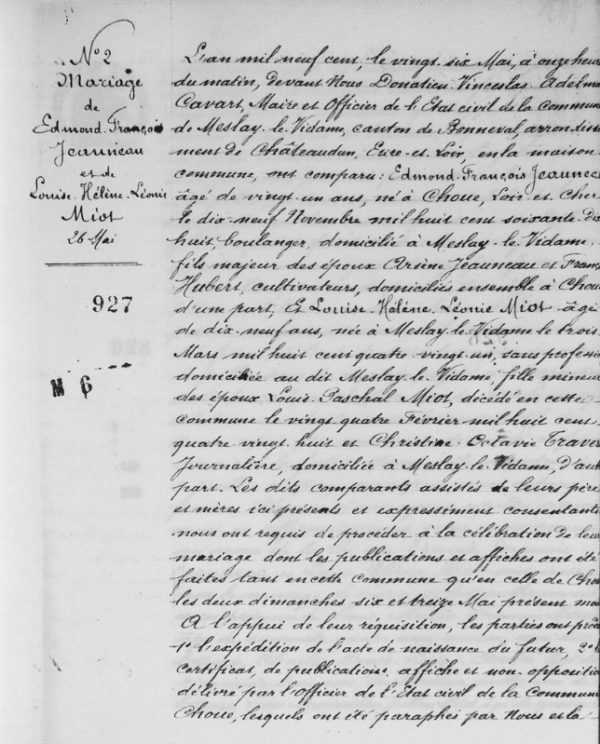 N° 2
Mariage
de
Edmond-François
Jeauneau
et de
Louise-Hélène-Léonie
Miot
26 Mai
927
M 6
L'an mil neuf cent, le vingt six Mai, à onze heur
du matin, devant Nous Donatien Vinceslas Adelm
Cavart, Maire et Officier de l'Etat civil de la Commun
de Meslay-le-Vidame, canton de Bonneval, arrondiss
ment de Châteaudun, Eure-et-Loir, en la maison
commune, ont comparu : Edmond-François Jeaunea
âgé de vingt-un ans, né à Choue, Loir-et-Cher
le dix-neuf Novembre mil huit cent soixante-dix
huit, boulanger, domicilié à Meslay-le-Vidame,
fils majeur des époux Arsène Jeauneau et Franç
Hubert, cultivateurs, domiciliés ensemble à Chou
d'une part, Et Louise-Hélène-Léonie Miot âgé
de dix-neuf ans, née à Meslay-le-Vidame le trois
Mars mil huit cent quatre-vingt-un, sans professi
domiciliée au dit Meslay-le-Vidame, fille mineur
des époux Louis-Paschal Miot, décédé en cette
commune le vingt quatre Février mil huit cent
quatre-vingt-huit et Christine-Octavie Traver
Journalière, domiciliée à Meslay-le-Vidame, d'aut
part. Les dits comparants assistés de leurs père
et mères ici présents et expressément consentants
nous ont requis de procéder à la célébration de leu
mariage dont les publications et affiches ont été
faites tant en cette commune qu'en celle de Cho
les deux dimanches six et treize Mai présent mo
A l'appui de leur réquisition, les parties ont prod
1° l'expédition de l'acte de naissance du futur, 2° l
certificat, de publications, affiche et non-oppositio
délivré par l'Officier de l'Etat civil de la Commun
Choue, lesquels ont été paraphés par Nous et la